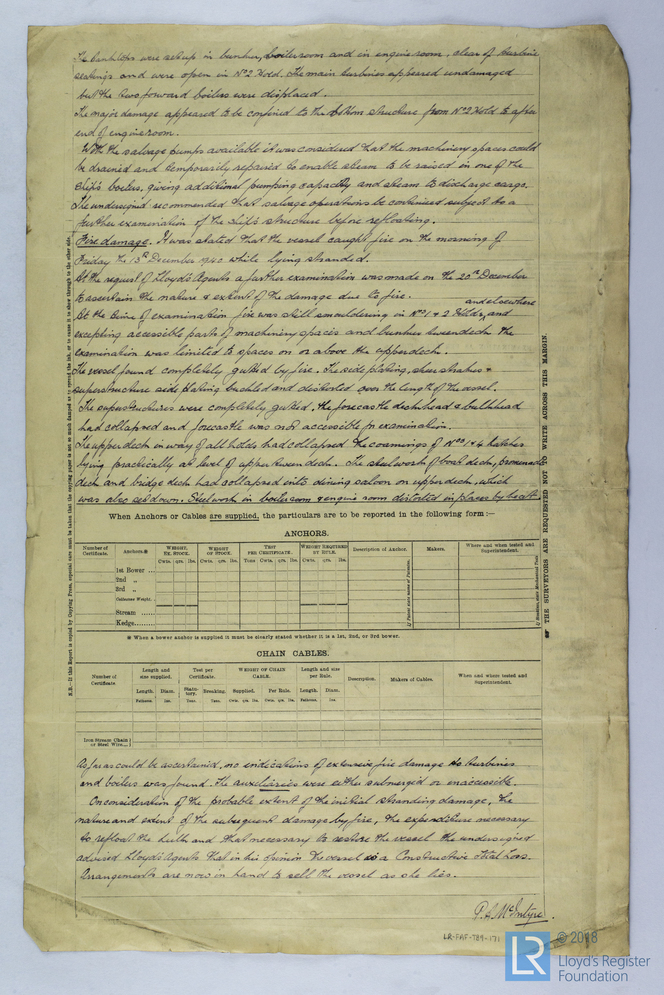 The tank tops were set up in bunker, boiler room and in engine room, clear of turbine
seatings and were open in No 2 Hold. The main turbines appeared undamaged
but the two forward boilers were displaced.
The major damage appeared to be confined to the bottom structure from No 2 Hold to after
end of engine room.
With the salvage pumps available it was considered that the machinery spaces could
be drained and temporarily repaired to enable steam to be raised in one of the
ship's boilers, giving additional pumping capacity and steam to discharge cargo.
The undersigned recommended that salvage operations be continued subject to a
further examination of the ship's structure before refloating.
Fire damage. It was stated that the vessel caught fire on the morning of
Friday the 13th December 1940 while lying stranded.
At the request of Lloyd's Agents a further examination was made on the 20th December
to ascertain the nature & extent of the damage due to fire.
and elsewhere
At the time of examination fire was still smouldering in Nos 1 & 2 Holds, and
excepting accessible parts of machinery spaces and bunker tweendeck the
examination was limited to spaces on or above the upper deck.
The vessel found completely gutted by fire. The side plating, sheerstrakes &
superstructure side plating buckled and distorted over the length of the vessel.
The superstructures were completely gutted, the forecastle deckhead & bulkhead
had collapsed and forecastle was not accessible for examination.
The upper deck in way of all holds had collapsed the coamings of Nos 1 & 4 hatches
lying practically at level of upper tween deck. The steelwork of boat deck, promenade
deck and bridge deck had collapsed into dining saloon on upper deck, which
was also set down. Steelwork in boiler room & engine room distorted in places by heat.
When Anchors or Cables are supplied, the particulars are to be reported in the following form :—
ANCHORS.
Number of Certificate. Anchors.* WEIGHT, EX. STOCK. WEIGHT OF STOCK. TEST PER CERTIFICATE. WEIGHT REQUIRED BY RULE. Description of Anchor. Makers. Where and when tested and Superintendent.
Cwts. qrs. lbs. Cwts. qrs. lbs. Tons Cwts. qrs. lbs. Cwts. qrs. lbs.
1st Bower ...
2nd „
3rd „
Collective Weight.
Stream ......
Kedge.........
* When a bower anchor is supplied it must be clearly stated whether it is a 1st, 2nd, or 3rd bower.
CHAIN CABLES.
Number of Certificate Length and size supplied. Test per Certificate. WEIGHT OF CHAIN CABLE. Length and size per Rule. Description. Makers of Cables. When and where tested and Superintendent.
Length. Diam. Statutory. Breaking. Supplied. Per Rule. Length. Diam.
Fathoms. Ins. Tons. Tons. Cwts. qrs. lbs Cwts. qrs. lbs. Fathoms. Ins.
Iron Stream Chain or Steel Wire...
As far as could be ascertained, no indications of extensive fire damage to turbines
and boilers was found. The auxiliaries were either submerged or inaccessible.
On consideration of the probable extent of the initial stranding damage, the
nature and extent of the subsequent damage by fire, the expenditure necessary
to refloat the hulk and that necessary to restore the vessel the undersigned
advised Lloyd's Agents that in his opinion the vessel is a Constructive Total Loss.
Arrangements are now in hand to sell the vessel as she lies.
P. A. McIntyre.
LR-FAF-789-171
THE SURVEYORS ARE REQUESTED NOT TO WRITE ACROSS THIS MARGIN.
© 2018
LR
Lloyd's Register
Foundation